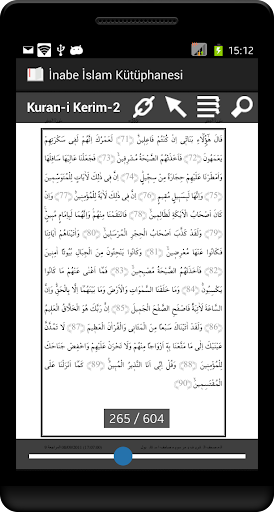 15:12
İnabe İslam Kütüphanesi
Kuran-i Kerim-2
قَالَ هَؤُلَاءِ بَنَاتِي إِنْ كُنْتُمْ فَاعِلِينَ (71) لَعَمْرُكَ إِنَّهُمْ لَفِي سَكْرَتِهِمْ
يَعْمَهُونَ (72) فَأَخَذَتْهُمُ الصَّيْحَةُ مُشْرِقِينَ (73) فَجَعَلْنَا عَالِيَهَا سَافِلَهَا
وَأَمْطَرْنَا عَلَيْهِمْ حِجَارَةً مِنْ سِجِّيلٍ (74) إِنَّ فِي ذَلِكَ لَآيَاتٍ لِلْمُتَوَسِّمِينَ
(75) وَإِنَّهَا لَبِسَبِيلٍ مُقِيمٍ (76) إِنَّ فِي ذَلِكَ لَآيَةً لِلْمُؤْمِنِينَ (77) وَإِنْ
كَانَ أَصْحَابُ الْأَيْكَةِ لَظَالِمِينَ (78) فَانْتَقَمْنَا مِنْهُمْ وَإِنَّهُمَا لَبِإِمَامٍ مُبِينٍ
(79) وَلَقَدْ كَذَّبَ أَصْحَابُ الْحِجْرِ الْمُرْسَلِينَ (80) وَآتَيْنَاهُمْ آيَاتِنَا
فَكَانُوا عَنْهَا مُعْرِضِينَ (81) وَكَانُوا يَنْحِتُونَ مِنَ الْجِبَالِ بُيُوتًا آمِنِينَ
(82) فَأَخَذَتْهُمُ الصَّيْحَةُ مُصْبِحِينَ (83) فَمَا أَغْنَى عَنْهُمْ مَا كَانُوا
يَكْسِبُونَ (84) وَمَا خَلَقْنَا السَّمَوَاتِ وَالْأَرْضَ وَمَا بَيْنَهُمَا إِلَّا بِالْحَقِّ وَإِنَّ
السَّاعَةَ لَآتِيَةٌ فَاصْفَحِ الصَّفْحَ الْجَمِيلَ (85) إِنَّ رَبَّكَ هُوَ الْخَلَّاقُ الْعَلِيمُ
(86) وَلَقَدْ آتَيْنَاكَ سَبْعًا مِنَ الْمَثَانِي وَالْقُرْآنَ الْعَظِيمَ (87) لَا تَمُدَّنَّ
عَيْنَيْكَ إِلَى مَا مَتَّعْنَا بِهِ أَزْوَاجًا مِنْهُمْ وَلَا تَحْزَنْ عَلَيْهِمْ وَاخْفِضْ جَنَاحَكَ
لِلْمُؤْمِنِينَ (88) وَقُلْ إِنِّي أَنَا النَّذِيرُ الْمُبِينُ (89) كَمَا أَنْزَلْنَا عَلَى
الْمُقْتَسِمِينَ (90)
265 / 604